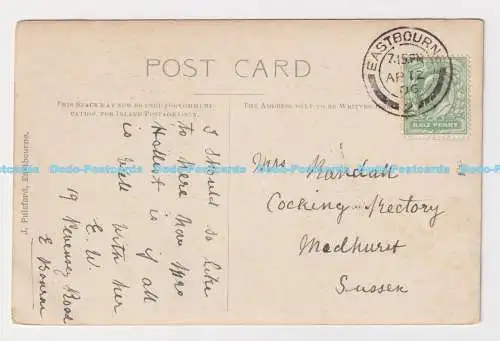 POST CARD
THIS SPACE MAY NOW BE USED FOR COMMUNI-
CATION, FOR INLAND POSTAGE ONLY.
THE ADDRESS ONLY TO BE WRITTEN
EASTBOURNE
7.15 PM
AP 12
06
2
HALF PENNY
I should so like
to hear how Mrs
is if all
is well with her
E. W.
19 Pevensey Road
E Bourne
Mrs Randall
Cocking Rectory
Medhurst
Sussex
J. Pulsford, Eastbourne.
Dodo-Postcards